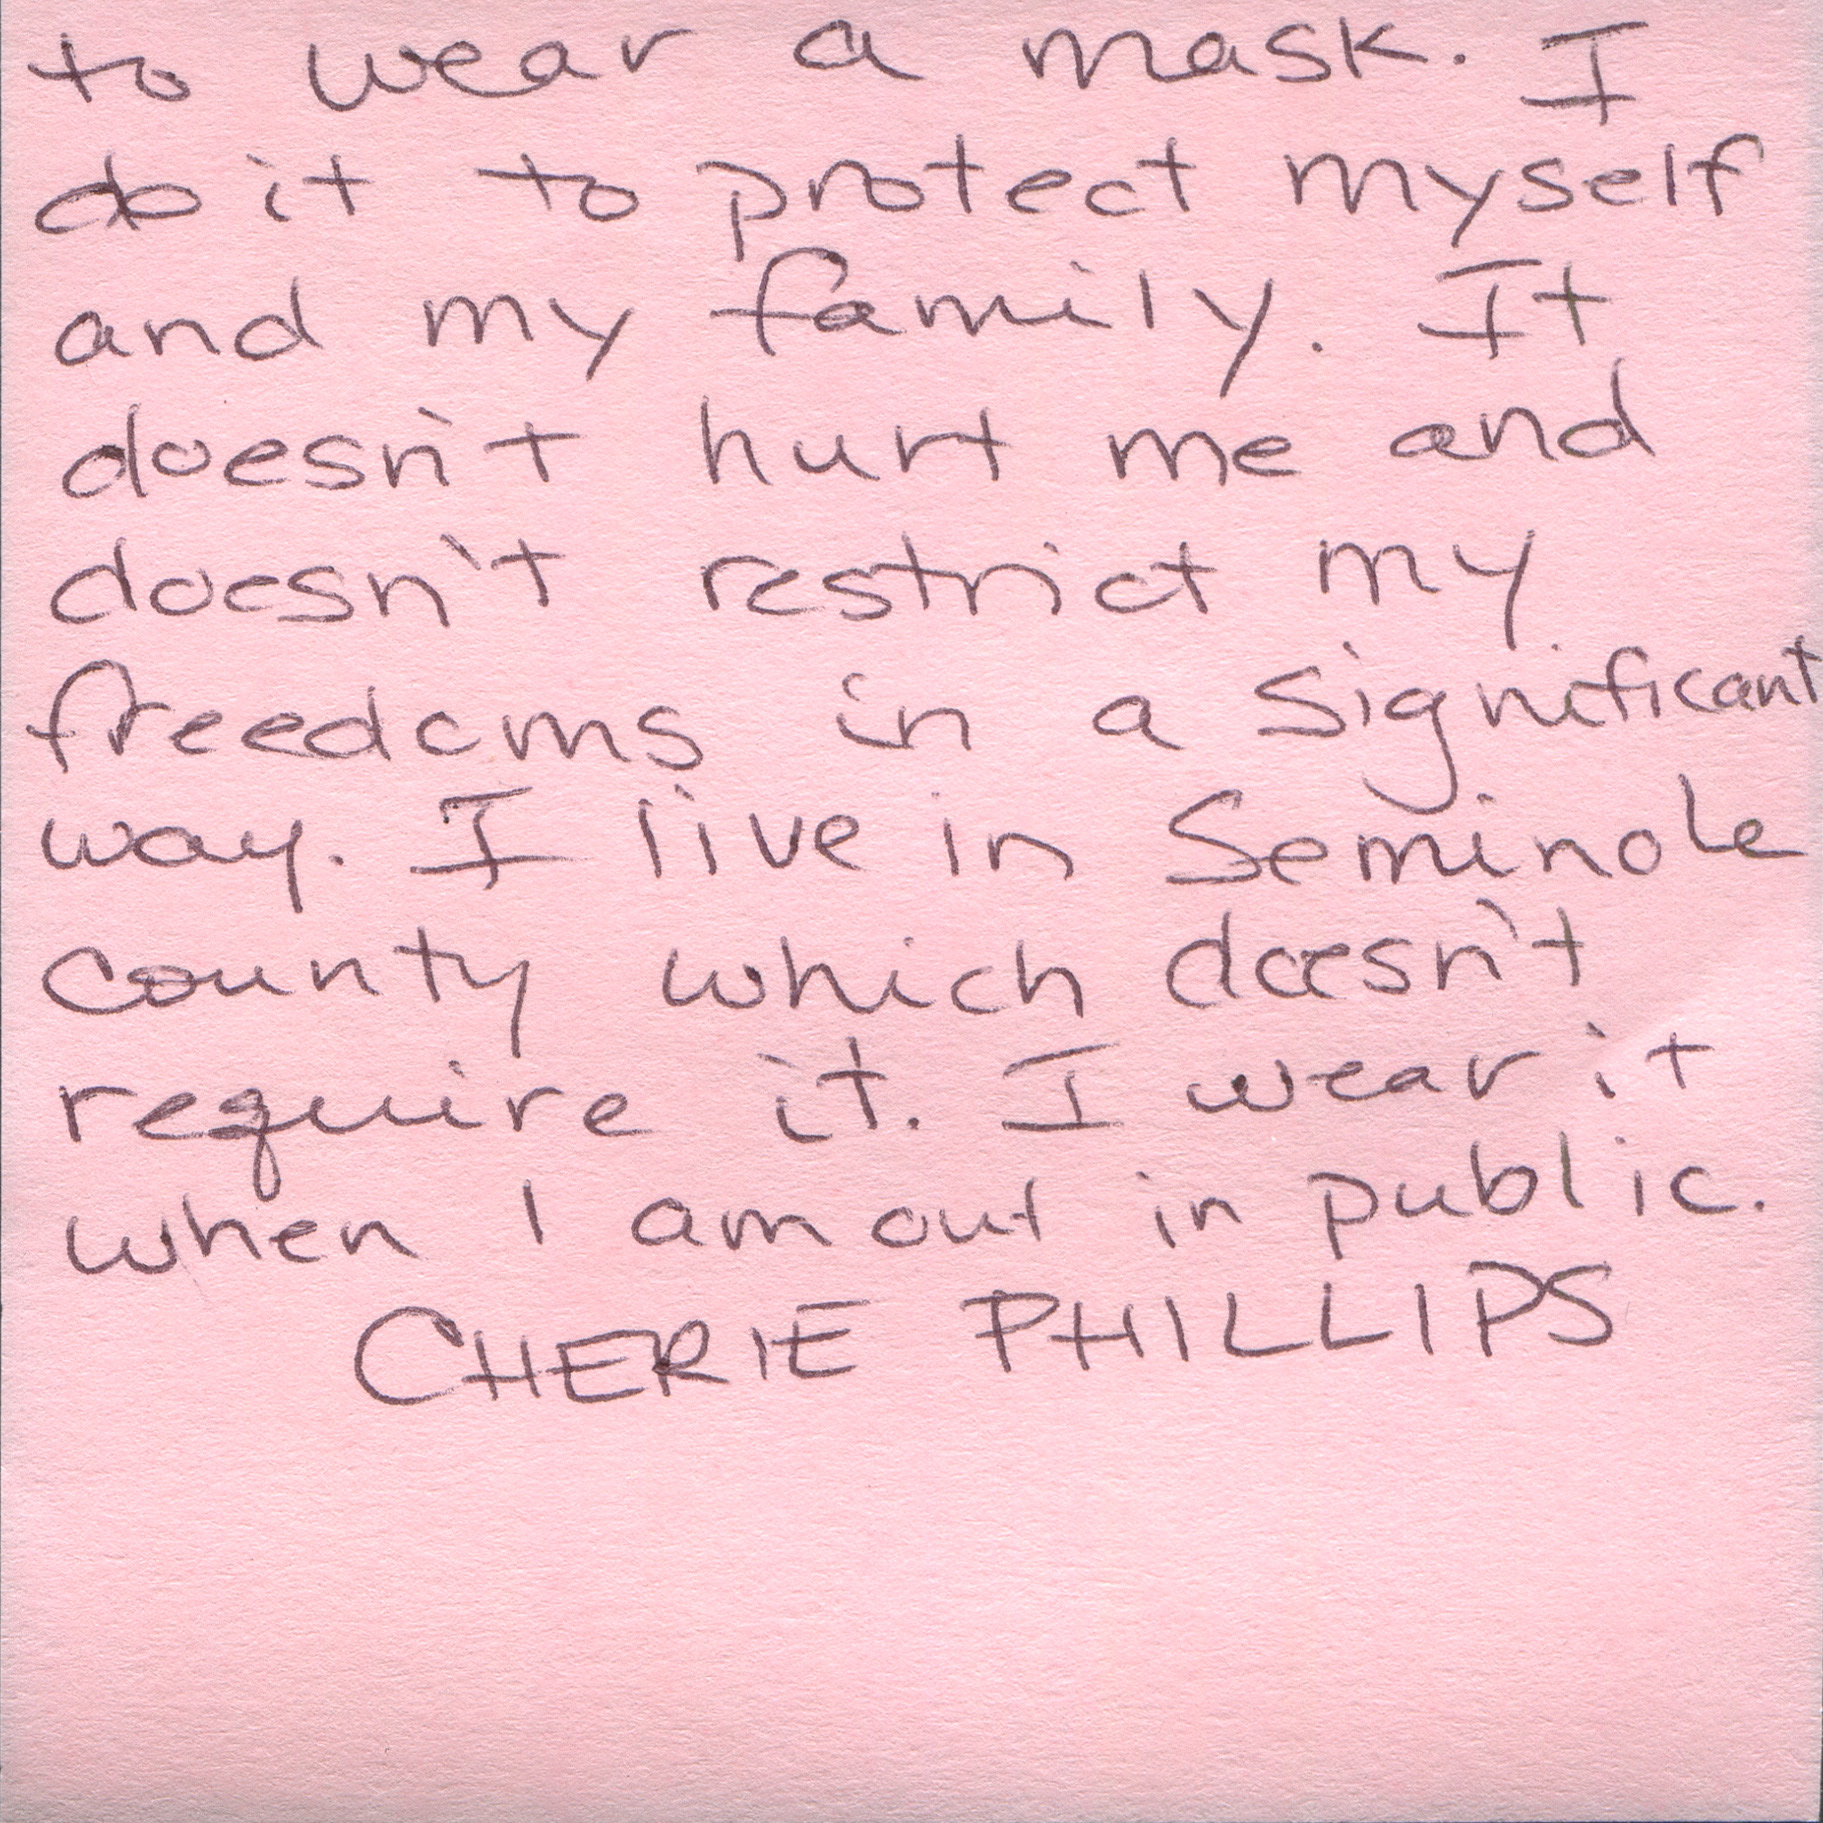 to wear a mask. I
do it to protect myself
and my family. It
doesn't hurt me and
doesn't restrict my
freedoms in a significant
way. I live in Seminole
County which doesn't
require it. I wear it
when I am out in public.
CHERIE PHILLIPS